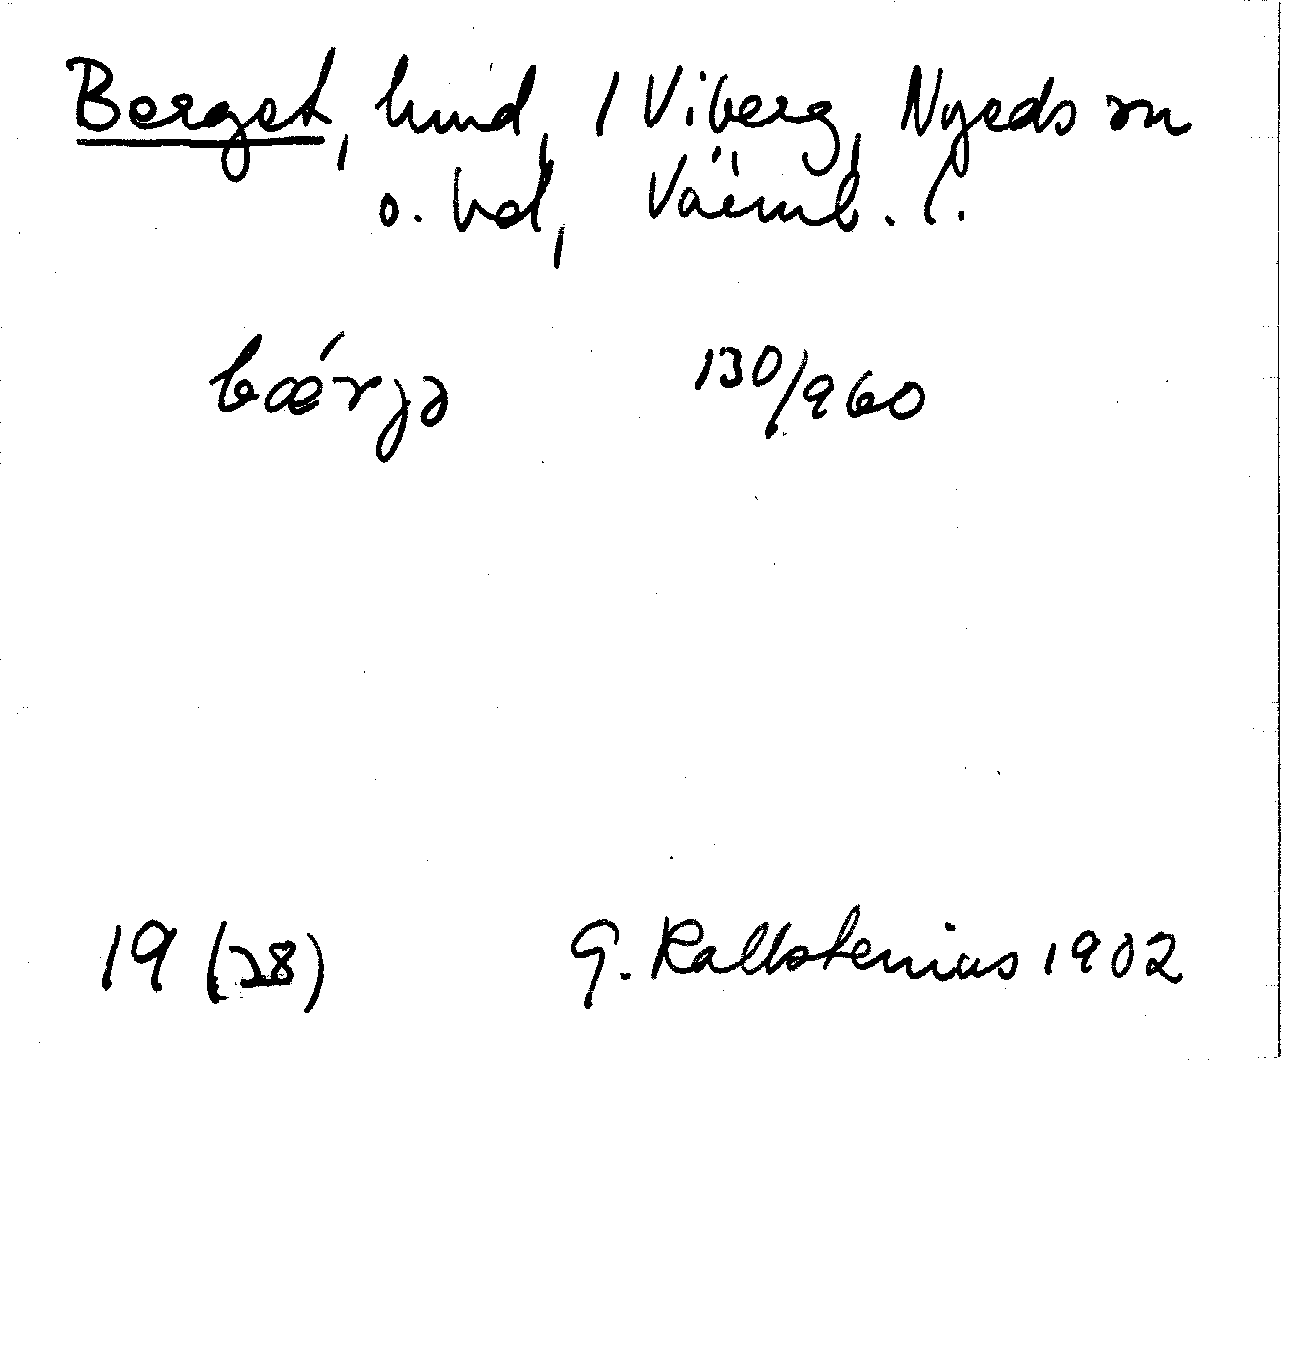 Berget, hmd, 1 Viberg, Nyeds sn
o. hd, Värml. l.
bǽrjə 130/960
19 (28) G. Kallstenius 1902